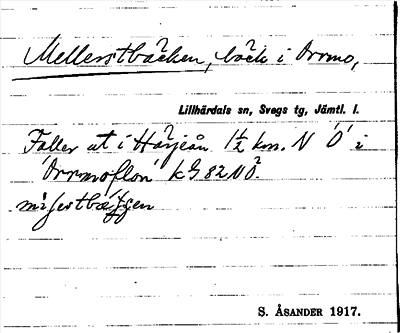 Mellerstbäcken, bäck i Orrmo,
Lillhärdals sn, Svegs tg, Jämtl. l.
Faller ut i Härjeån 1½ km. N Ö i
Orrmoflon kG. 82 NÖ.
S. ÅSANDER 1917.